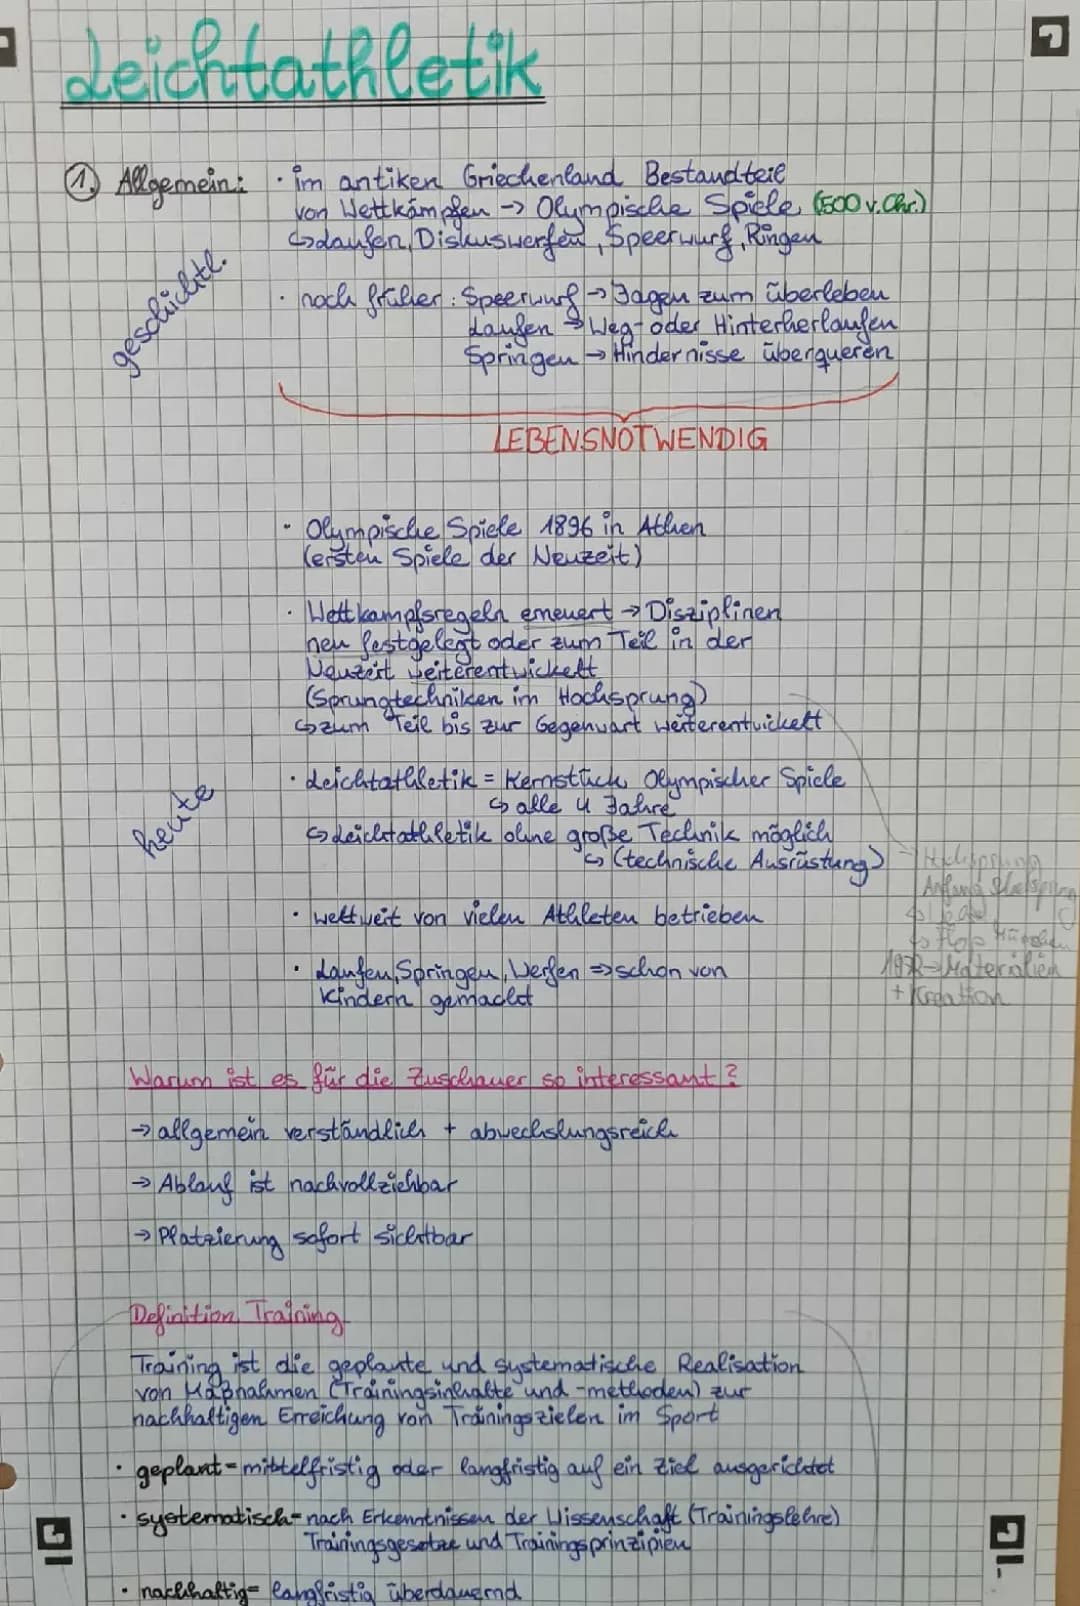 Leichtathletik
1. Allgemein:
· im antiken Griechenland Bestandteil
von Wettkämpfen → Olympische Spiele (500 v. Chr.)
↳ Laufen, Diskuswerfen, Speerwurf, Ringen
geschichtl.
· noch früher: Speerwurf → Jagen zum überleben
Laufen → Weg- oder Hinterherlaufen
Springen → Hindernisse überqueren
LEBENSNOTWENDIG
· Olympische Spiele 1896 in Athen
(ersten Spiele der Neuzeit)
· Wettkampfsregeln erneuert → Disziplinen
neu festgelegt oder zum Teil in der
Neuzeit weiterentwickelt
(Sprungtechniken im Hochsprung)
↳ zum Teil bis zur Gegenwart weiterentwickelt
heute
· Leichtathletik = Kernstück Olympischer Spiele
↳ alle 4 Jahre
↳ Leichtathletik ohne große Technik möglich
↳ (technische Ausrüstung)
→ Hochsprung
Anfang
↳ Flop
→ Materialien
+ Kreation
· weltweit von vielen Athleten betrieben
· Laufen, Springen, Werfen => schon von
Kindern gemacht
Warum ist es für die Zuschauer so interessant?
→ allgemein verständlich + abwechslungsreich
→ Ablauf ist nachvollziehbar
→ Platzierung sofort sichtbar
Definition Training
Training ist die geplante und systematische Realisation
von Maßnahmen (Trainingsinhalte und -methoden) zur
nachhaltigen Erreichung von Trainingszielen im Sport
· geplant = mittelfristig oder langfristig auf ein Ziel ausgerichtet
· systematisch = nach Erkenntnissen der Wissenschaft (Trainingslehre)
Trainingsgesetze und Trainingsprinzipien
· nachhaltig = langfristig überdauernd